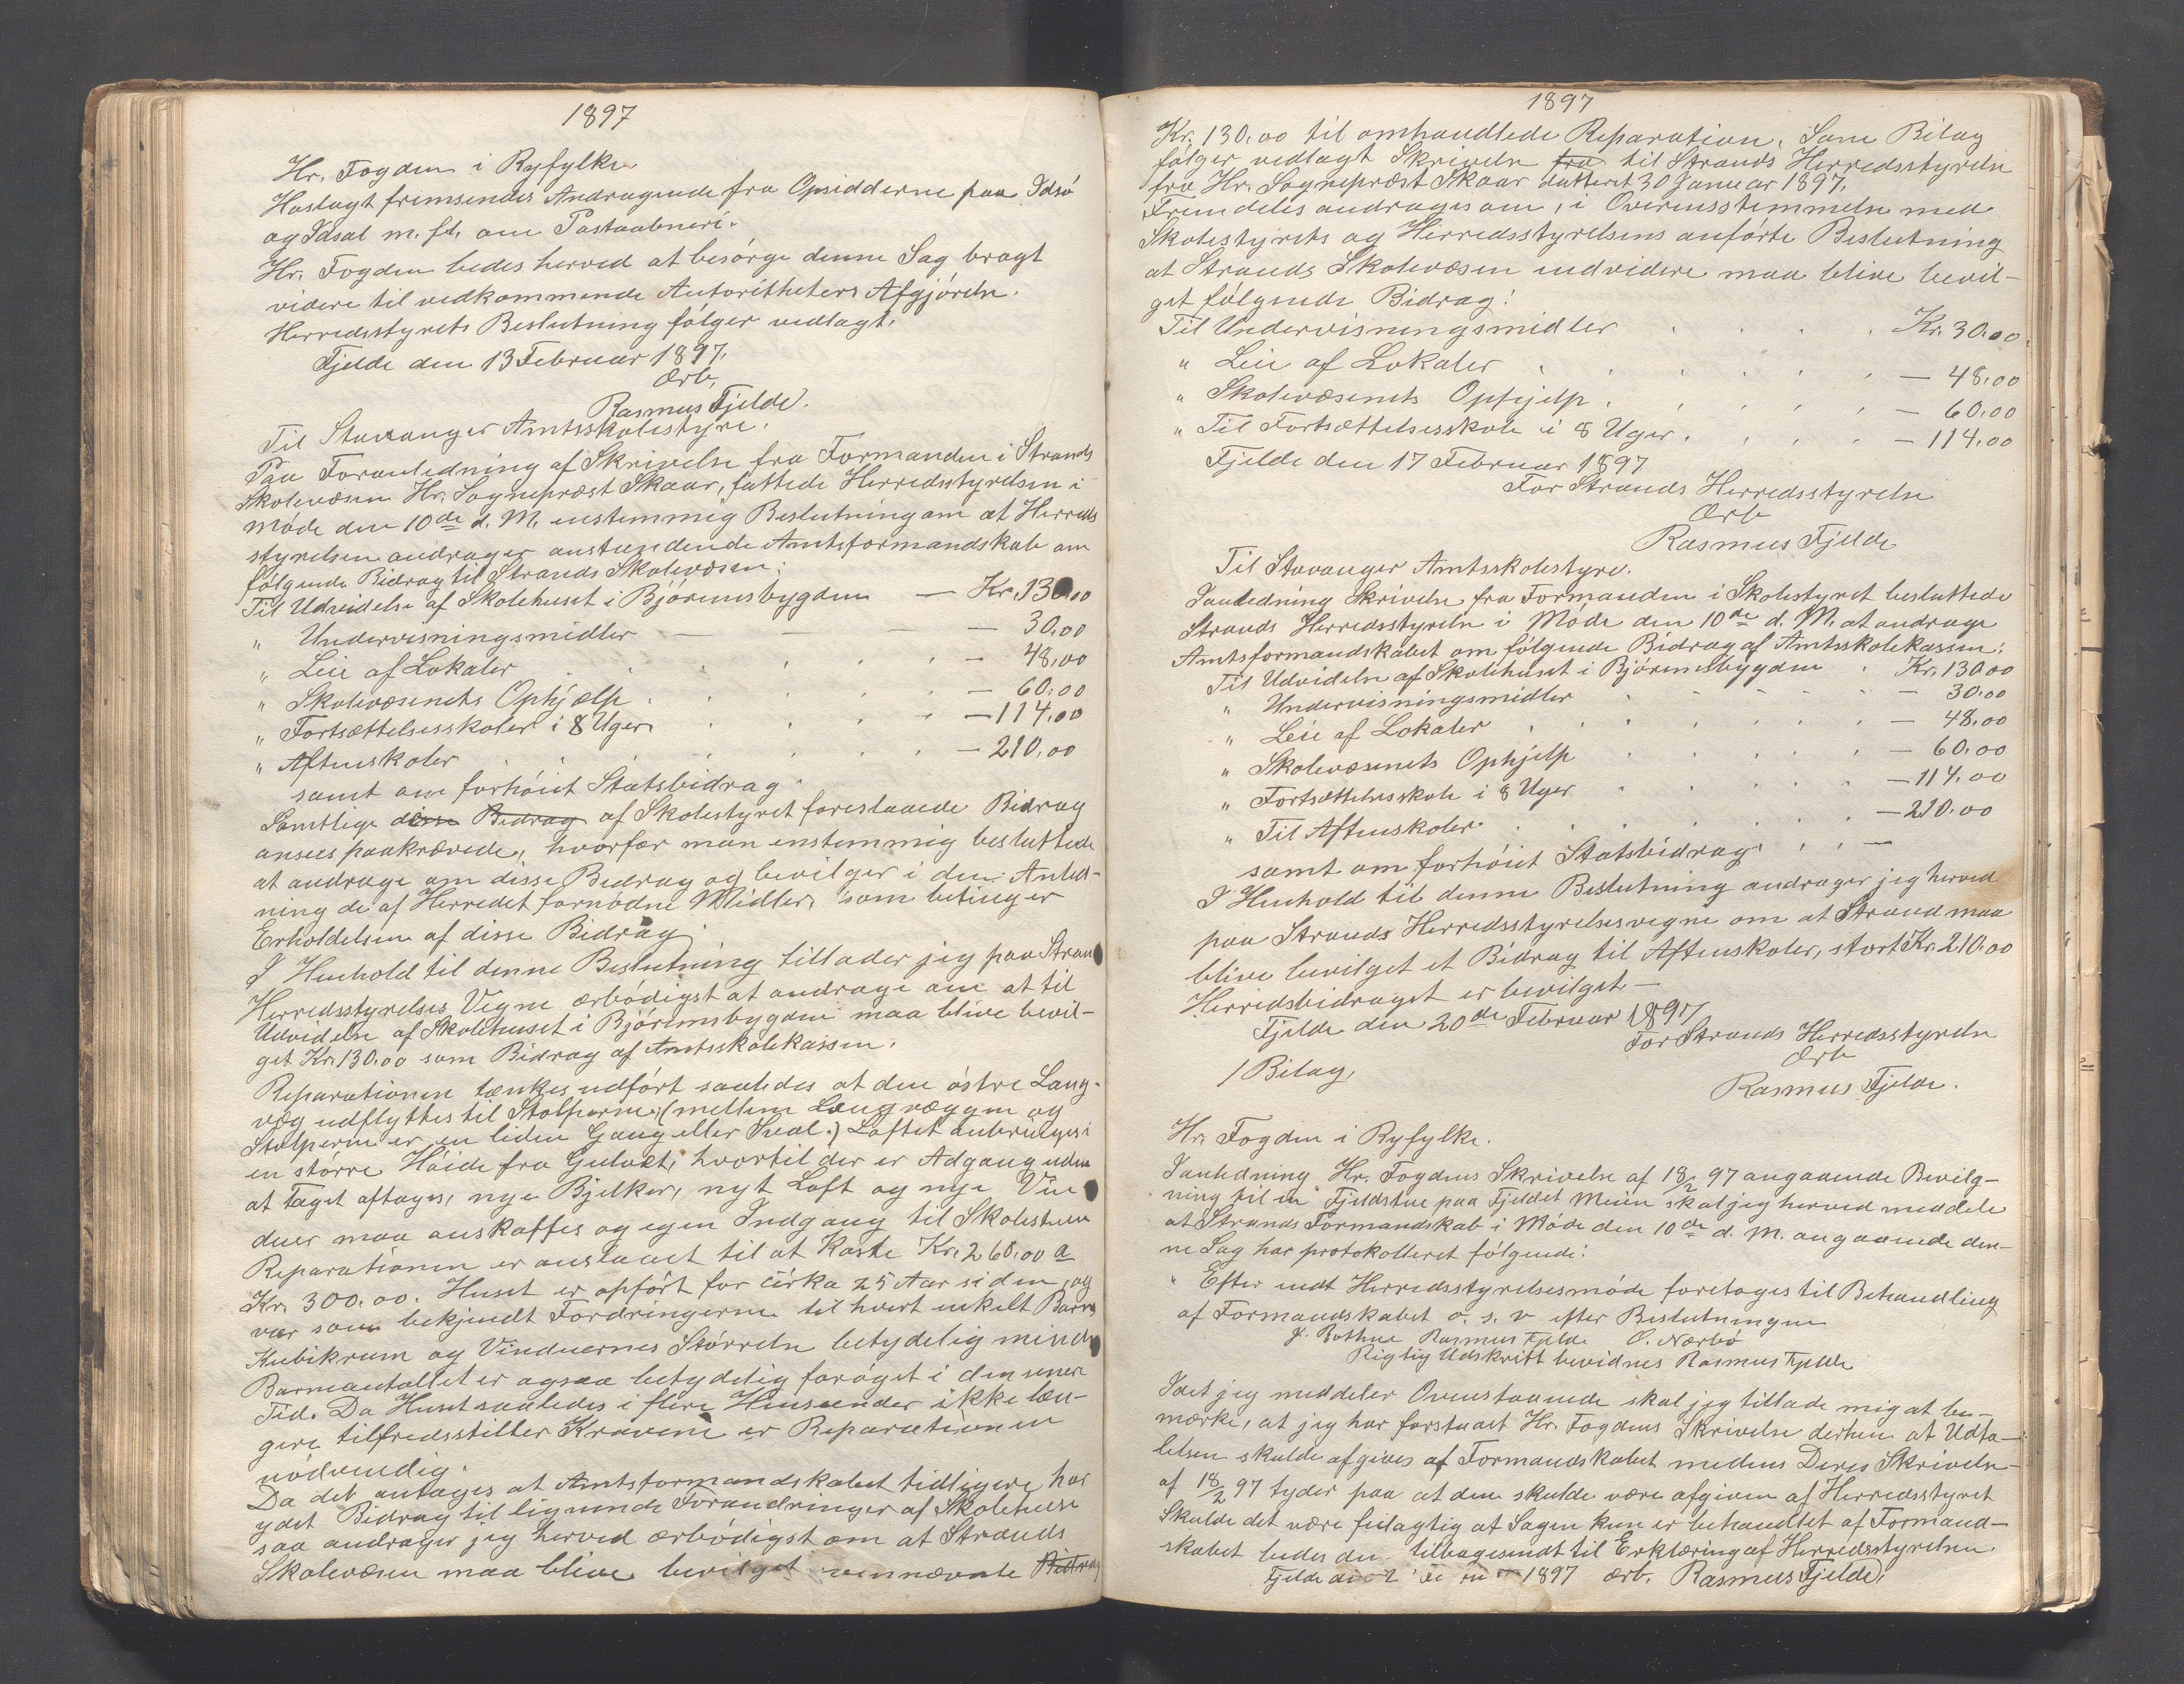 1897
Hr. Fogden i Ryfylke.
Hoslagt fremsendes Andragende fra Opsidderne paa Idsö
og Idsal m. fl. om Postaabneri.
Hr. Fogden bedes herved at besörge denne Sag bragt
videre til vedkommende Autoritheters Afgjörelse.
Herredsstyrets Beslutning fölger vedlagt.
Fjelde den 13 Februar 1897.
Ærb.
Rasmus Fjelde.
Til Stavanger Amtsskolestyre.
Paa Foranledning af Skrivelse fra Formanden i Strands
Skolevæsen Hr. Sogneprest Skaar, fattede Herredsstyrelsen i
Möde den 10de d. M. enstemmig Beslutning om at Herreds
styrelsen andrager anstundende Amtsformandskab om
fölgende Bidrag til Strands Skolevæsen:
Til Udvidelse af Skolehuset i Björeimsbygden — Kr. 130,00
" Undervisningsmidler — — — — 30,00
" Leie af Lokaler — 48,00
" Skolevæsenets Ophjælp — 60,00
" Fortsættelsesskoler i 8 Uger — 114,00
" Aftenskoler — 210,00
samt om forhöiet Statsbidrag.
Samtlige disse Bidrag af Skolestyret foreslaaede Bidrag
ansees paakrævede, hvorfor man enstemmig besluttede
at andrage om disse Bidrag og bevilger i den Anled-
ning de af Herredet fornödne Midler, som betinger
Erholdelsen af disse Bidrag.
I Henhold til denne Beslutning tillader jeg paa Strand
Herredsstyrelses Vegne ærbödigst at andrage om at til
Udvidelse af Skolehuset i Björeimsbygden maa blive bevil-
get Kr. 130,00 som Bidrag af Amtsskolekassen.
Reparationen tænkes udfört saaledes at den östre Lang-
væg udflyttes til Stolperne; (mellem Langvæggen og
Stolperne er en liden Gang eller Sval.) Loftet anbringes i
en större Höide fra Gulvet, hvortil der er Adgang uden
at Taget aftages, nye Bjelker, nyt Loft og nye Vin
duer maa anskaffes og egen Indgang til Skolestuen
Reparationen er anslaaet til at koste Kr. 260,00 a
Kr. 300,00. Huset er opfört for cirka 25 Aar siden, og
var som bekjendt Fordringerne til hvert enkelt Barns
Kubikrum og Vinduernes Störrelse betydelig mindre
Barneantallet er ogsaa betydelig foröget i den senere
Tid. Da Huset saaledes i flere Henseender ikke læn-
gere tilfredsstiller Kravene er Reparationen
nödvendig.
Da det antages at Amtsformandskabet tidligere har
ydet Bidrag til lignende Forandringer af Skolehuse
saa andrager jeg herved ærbödigst om at Strands
Skolevæsen maa blive bevilget ovennævnte Bidrag
1897
Kr. 130,00 til omhandlede Reparation. Som Bilag
fölger vedlagt Skrivelse fra til Strands Herredsstyrelse
fra Hr. Sogneprest Skaar datteret 30 Januar 1897.
Fremdeles andrages om, i Overensstemmelse med
Skolestyrets og Herredsstyrelsens anförte Beslutning
at Strands Skolevæsen endvidere maa blive bevil-
get fölgende Bidrag:
Til Undervisningsmidler Kr. 30,00.
" Leie af Lokaler — 48,00
" Skolevæsenets Ophjelp — 60,00
" Til Fortsættelsesskole i 8 Uger — 114,00
Fjelde den 17 Februar 1897
For Strands Herredsstyrelse
Ærb
Rasmus Fjelde
Til Stavanger Amtsskolestyre.
Ianledning Skrivelse fra Formanden i Skolestyret besluttede
Strands Herredsstyrelse i Möde den 10de d. M. at andrage
Amtsformandskabet om fölgende Bidrag af Amtsskolekassen:
Til Udvidelse af Skolehuset i Björeimsbygden Kr. 130,00
" Undervisningsmidler — 30,00
" Leie af Lokaler — 48,00
" Skolevæsenets Ophjelp — 60,00
" Fortsættelsesskole i 8 Uger — 114,00
" Til Aftenskoler — 210,00
samt om forhöiet Statsbidrag —
I Henhold til denne Beslutning andrager jeg herved
paa Strands Herredsstyrelsesvegne om at Strand maa
blive bevilget et Bidrag til Aftenskoler, stort Kr. 210,00
Herredsbidraget er bevilget —
Fjelde den 20de Februar 1897
For Strands Herredsstyrelse
Ærb
1 Bilag,
Rasmus Fjelde.
Hr. Fogden i Ryfylke.
Ianledning Hr. Fogdens Skrivelse af 18/2 97 angaaende Bevilg-
ning til en Fjeldstue paa Fjeldet Meien skal jeg herved meddele
at Strands Formandskab i Möde den 10de d. M. angaaende den-
ne Sag har protokolleret fölgende:
" Efter endt Herredsstyrelsesmöde foretoges til Behandling
af Formandskabet o. s. v efter Beslutningen
J. Bothne Rasmus Fjelde O. Nærbö
Rigtig Udskrift bevidnes Rasmus Fjelde
Idet jeg meddeler Ovenstaaende skal jeg tillade mig at be-
mærke, at jeg har forstaaet Hr. Fogdens Skrivelse derhen at Udta-
lelsen skulde afgives af Formandskabet medens Deres Skrivelse
af 18/2 97 tyder paa at den skulde være afgiven af Herredsstyret
Skulde det være feilagtig at Sagen kun er behandlet af Formand-
skabet bedes den tilbagesendt til Erklæring af Herredsstyrelsen.
Fjelde den 2 1897 ærb. Rasmus Fjelde.